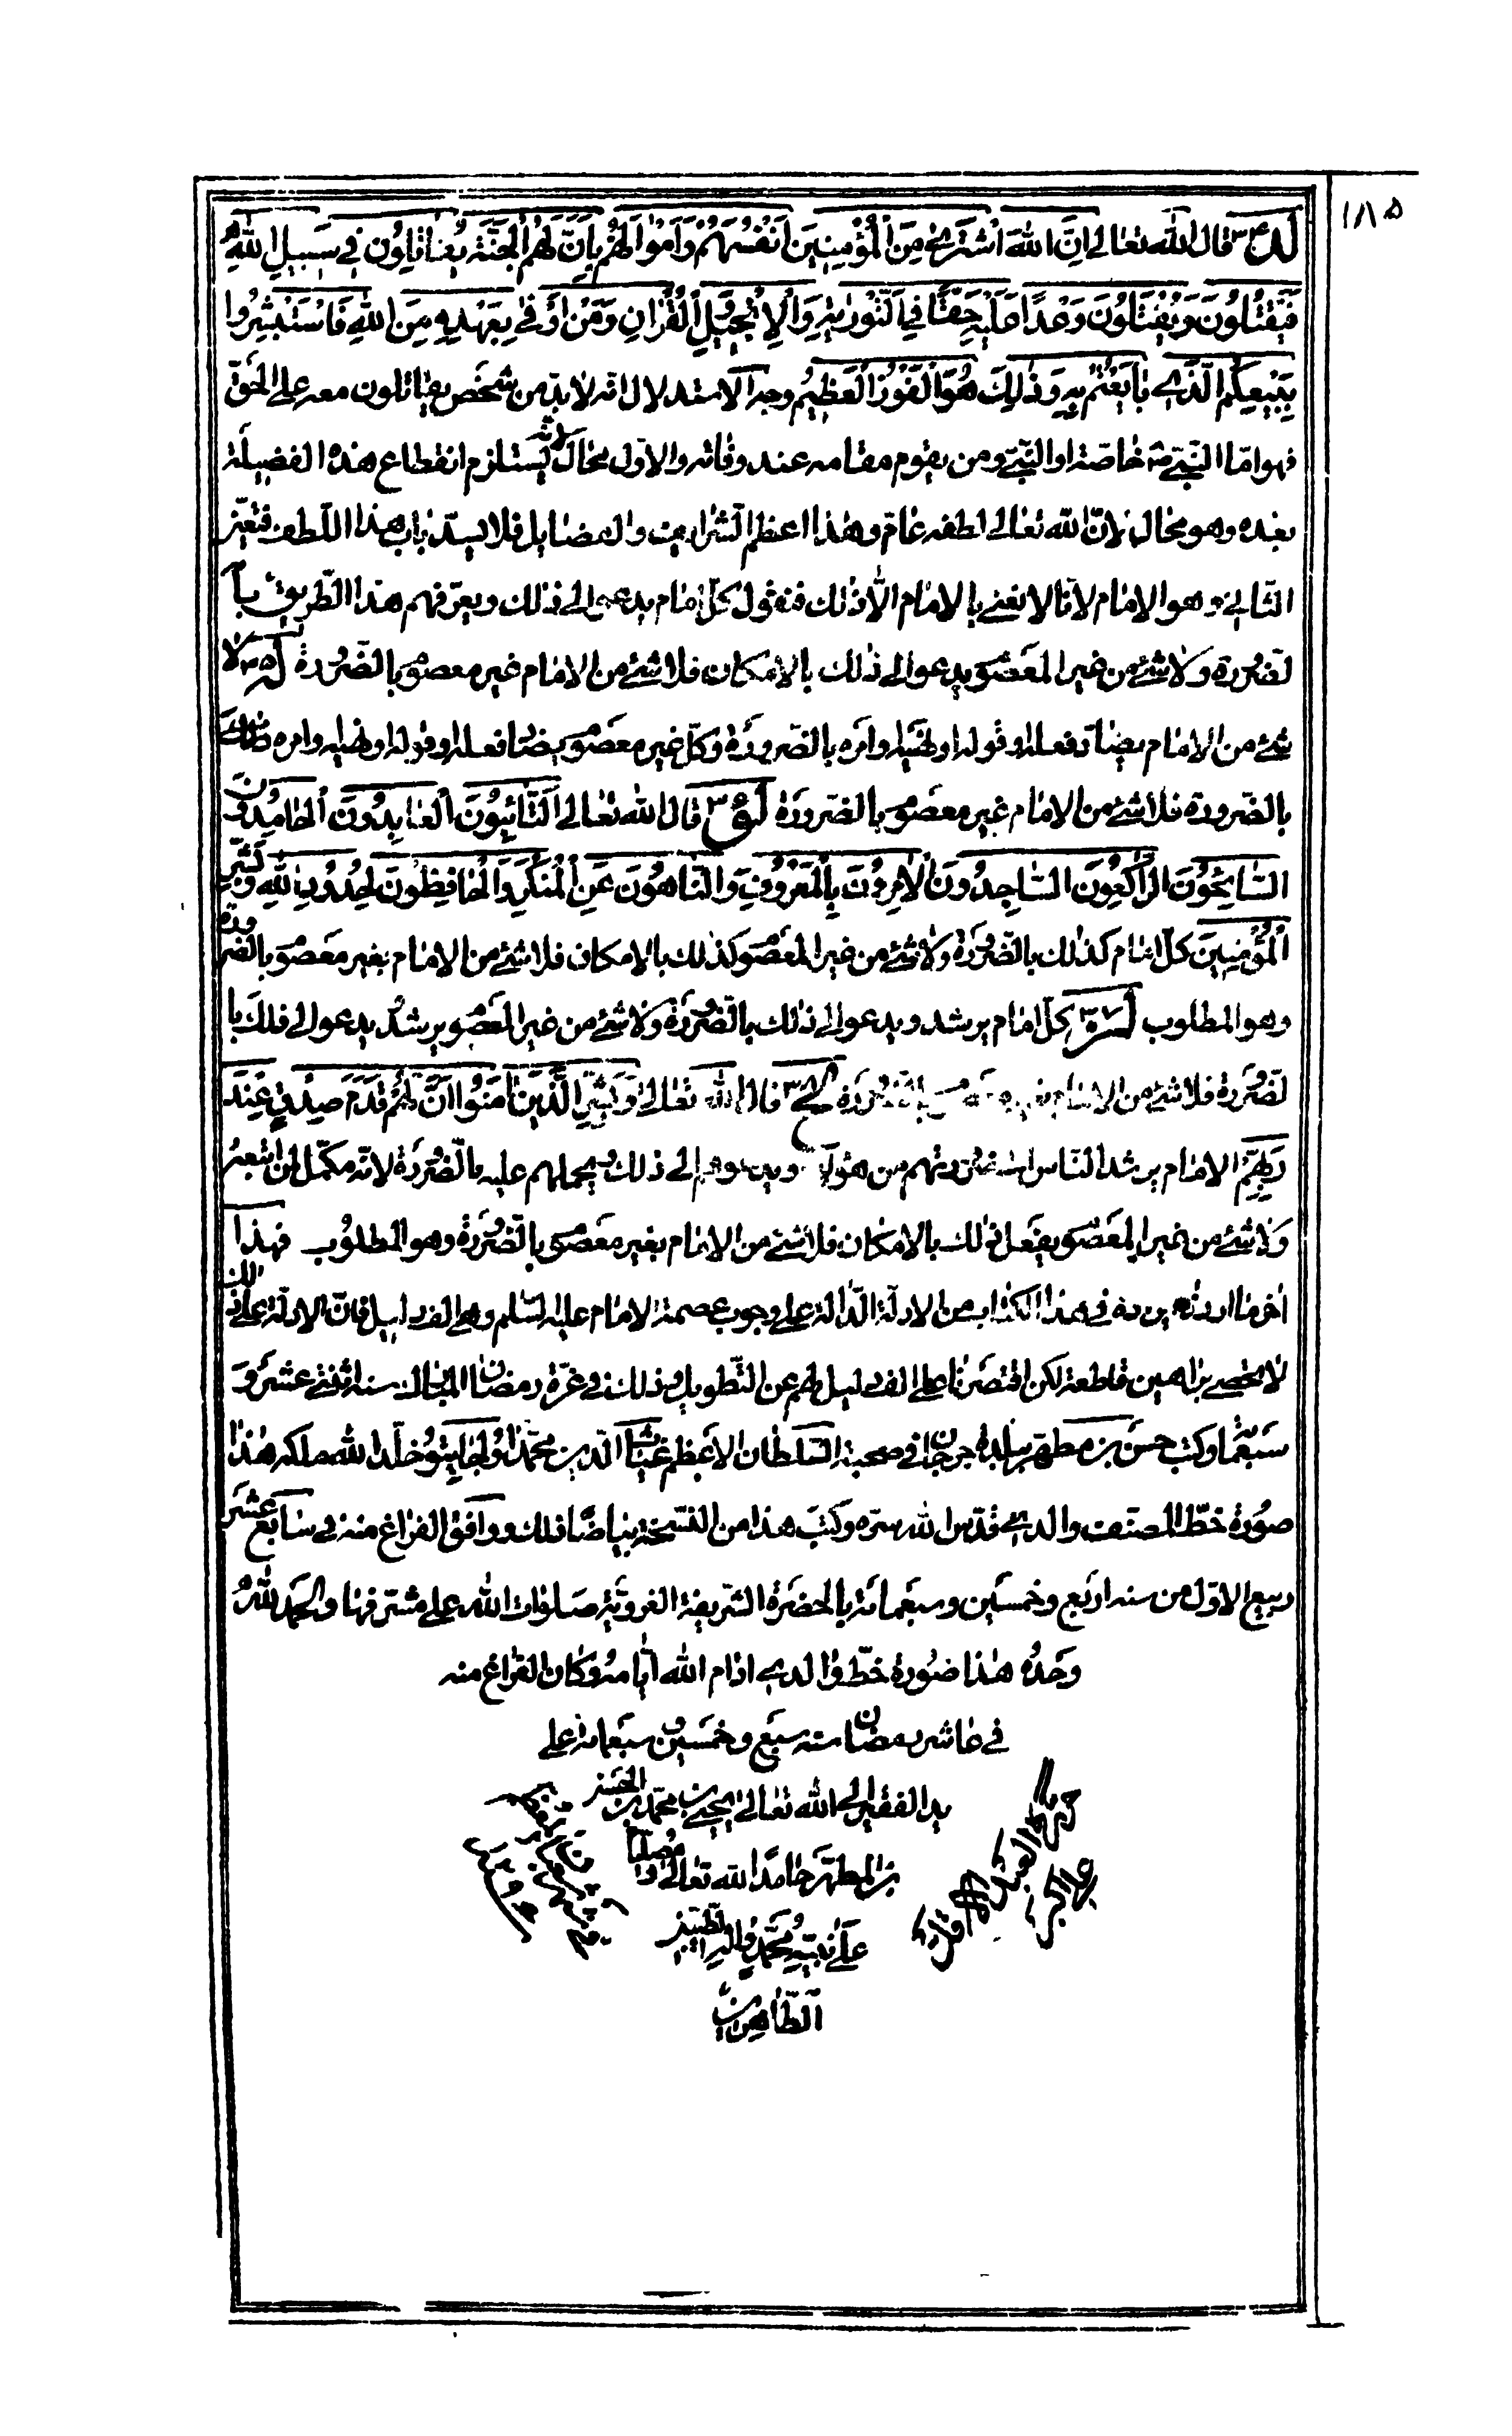 ١٨٥
لد ٣٤ قال الله تعالى اِنَّ اللهَ اشْتَرىٰ مِنَ الْمُؤْمِنِينَ اَنْفُسَهُمْ وَاَمْوٰالَهُمْ بِاَنَّ لَهُمُ الْجَنَّةَ يُقٰاتِلُونَ فِي سَبِيلِ اللهِ
فَيَقْتُلُونَ وَيُقْتَلُونَ وَعْدًا عَلَيْهِ حَقًّا فِي التَّوْرٰيةِ وَالْاِنْجِيلِ وَالْقُرْاٰنِ وَمَنْ اَوْفىٰ بِعَهْدِهِ مِنَ اللهِ فَاسْتَبْشِرُوا
بِبَيْعِكُمُ الَّذِي بٰايَعْتُمْ بِهِ وَذٰلِكَ هُوَ الْفَوْزُ الْعَظِيمُ وجه الاستدلال انه لابد من شخص يقاتلون معه على الحق
فهو اما النبي ص خاصة او النبي ومن يقوم مقامه عند وفاته والاول محال لانه يستلزم انقطاع هذه الفضيلة
بعده وهو محال لان الله تعالى لطفه عام وهذا اعظم الشرايف والفضايل فلا يسد باب هذا اللطف فتعين
الثاني وهو الامام لانا لا نعني بالامام الا ذلك فنقول كل امام يدعو الى ذلك ويعرفهم هذا الطريق با
لضرورة ولا شئ من غير المعصوم يدعو الى ذلك بالامكان فلا شئ من الامام غير معصوم بالضرورة له ٣٥ لا
شئ من الامام يضاد فعله او قوله او نهيه او امره بالضرورة وكل غير معصوم يضاد فعله او قوله او نهيه وامره ذلك
بالضرورة فلا شئ من الامام غير معصوم بالضرورة لو ٣٦ قال الله تعالى اَلتّٰائِبُونَ الْعٰابِدُونَ الْحٰامِدُونَ
السّٰائِحُونَ الرّٰاكِعُونَ السّٰاجِدُونَ الْاٰمِرُونَ بِالْمَعْرُوفِ وَالنّٰاهُونَ عَنِ الْمُنْكَرِ وَالْحٰافِظُونَ لِحُدُودِ اللهِ وَبَشِّرِ
الْمُؤْمِنِينَ كل امام كذلك بالضرورة ولا شئ من غير المعصوم كذلك بالامكان فلا شئ من الامام بغير معصوم بالضرورة
وهو المطلوب لز ٣٧ كل امام يرشد ويدعو الى ذلك بالضرورة ولا شئ من غير المعصوم يرشد يدعو الى ذلك با
لضرورة فلا شئ من الامام بغير معصوم بالضرورة لح ٣٨ قال الله تعالى وَبَشِّرِ الَّذِينَ اٰمَنُوا اَنَّ لَهُمْ قَدَمَ صِدْقٍ عِنْدَ
رَبِّهِمْ الامام يرشد الناس الى ويدعوهم الى ذلك ويحملهم عليه بالضرورة لانه مكمل لمن اتبعه
ولا شئ من غير المعصوم يفعل ذلك بالامكان فلا شئ من الامام بغير معصوم بالضرورة وهو المطلوب فهذا
اخر ما اردنا في هذا الكتاب من الادلة الدالة على وجوب عصمة الامام عليه السلم وهي الف دليل فان الادلة على ذلك
لا تحصى براهين قاطعة لكن اقتصرنا على الف دليل عن التطويل وذلك في غرة رمضان المبارك سنة اثنتي عشر و
سبعمائة وكتب حسن بن مطهر ببلدة جرجان في صحبة السلطان الاعظم غياث الدين محمد اولجايتو خلد الله ملكه هذا
صورة خط المصنف والدي قدس الله سره وكتب هذا من النسخة بياضا ووافق الفراغ منه في سابع عشر
ربيع الاول من سنة اربع وخمسين وسبعمائة بالحضرة الشريفة الغروية صلوات الله على مشرفها والحمد لله
وحده هذا صورة خط والدي ادام الله ايامه وكان الفراغ منه
في عاشر رمضان سنة سبع وخمسين وسبعمائة على
يد الفقير الى الله تعالى يحيى بن محمد بن الحسن
بن المطهر حامدا لله تعالى ومصليا
على نبيه محمد واله الطيبين
الطاهرين